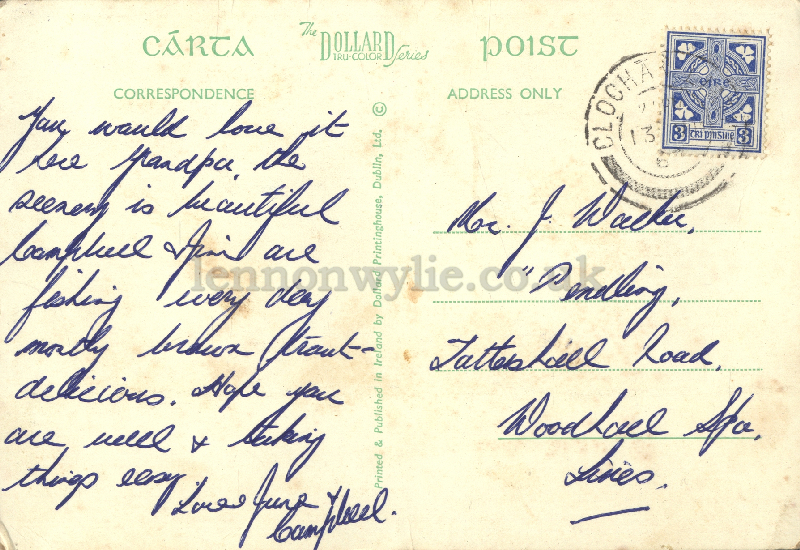 CÁRTA
The DOLLARD TRU-COLOR Series
POIST
CORRESPONDENCE
ADDRESS ONLY
You would love it
here Grandpa, the
scenery is beautiful
Campbell & Jim are
fishing every day
mostly brown trout -
delicious. Hope you
are well & taking
things easy.
Love June
Campbell.
Printed & Published in Ireland by Dollard Printinghouse, Dublin, Ltd. ©
CLOCHA
13
éire
3 trí pingine 3
Mr. J. Walker,
"Pendling,
Tattershall Road,
Woodhall Spa,
Lincs.
lennonwylie.co.uk